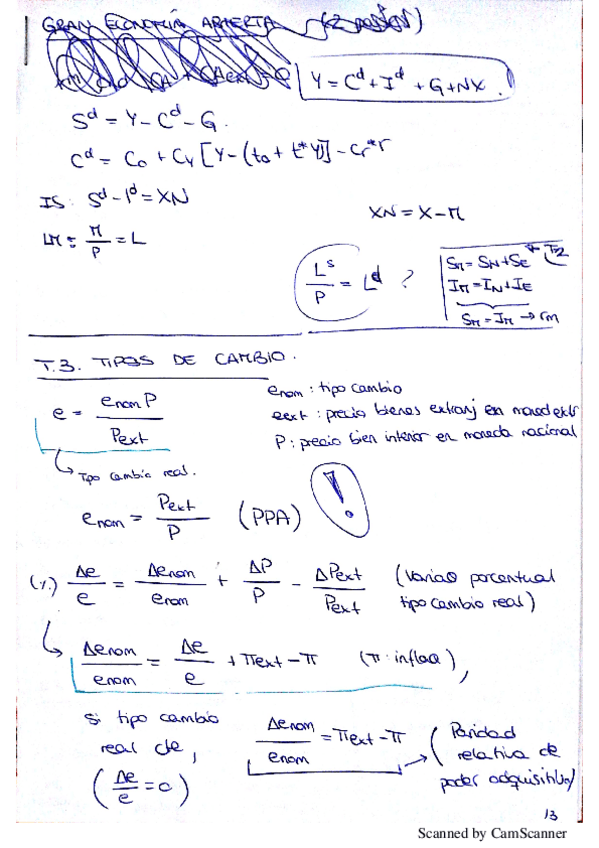 GRAN ECONOMÍA ABIERTA (2 países)
Y = C^d + I^d + G + NX.
S^d = Y - C^d - G.
C^d = C_0 + C_Y [Y - (t_0 + t*Y)] - C_r*r
IS: S^d - I^d = XN
XN = X - M
LM: M/P = L
L^s/P = L^d ?
S_M = S_N + S_E T2
I_M = I_N + I_E
S_M = I_M → r_m
T.3. TIPOS DE CAMBIO.
e = e_nom P / P_ext
e_nom: tipo cambio
e_ext: precio bienes extranj en moned extr
P: precio bien interior en moneda nacional
Tipo cambio real.
e_nom = P_ext / P (PPA) !
(%) Δe/e = Δe_nom/e_nom + ΔP/P - ΔP_ext/P_ext (Variac porcentual
tipo cambio real)
Δe_nom/e_nom = Δe/e + π_ext - π (π: inflac),
si tipo cambio
real cte,
(Δe/e = 0)
Δe_nom/e_nom = π_ext - π
(Paridad
relativa de
poder adquisitivo)
13
Scanned by CamScanner